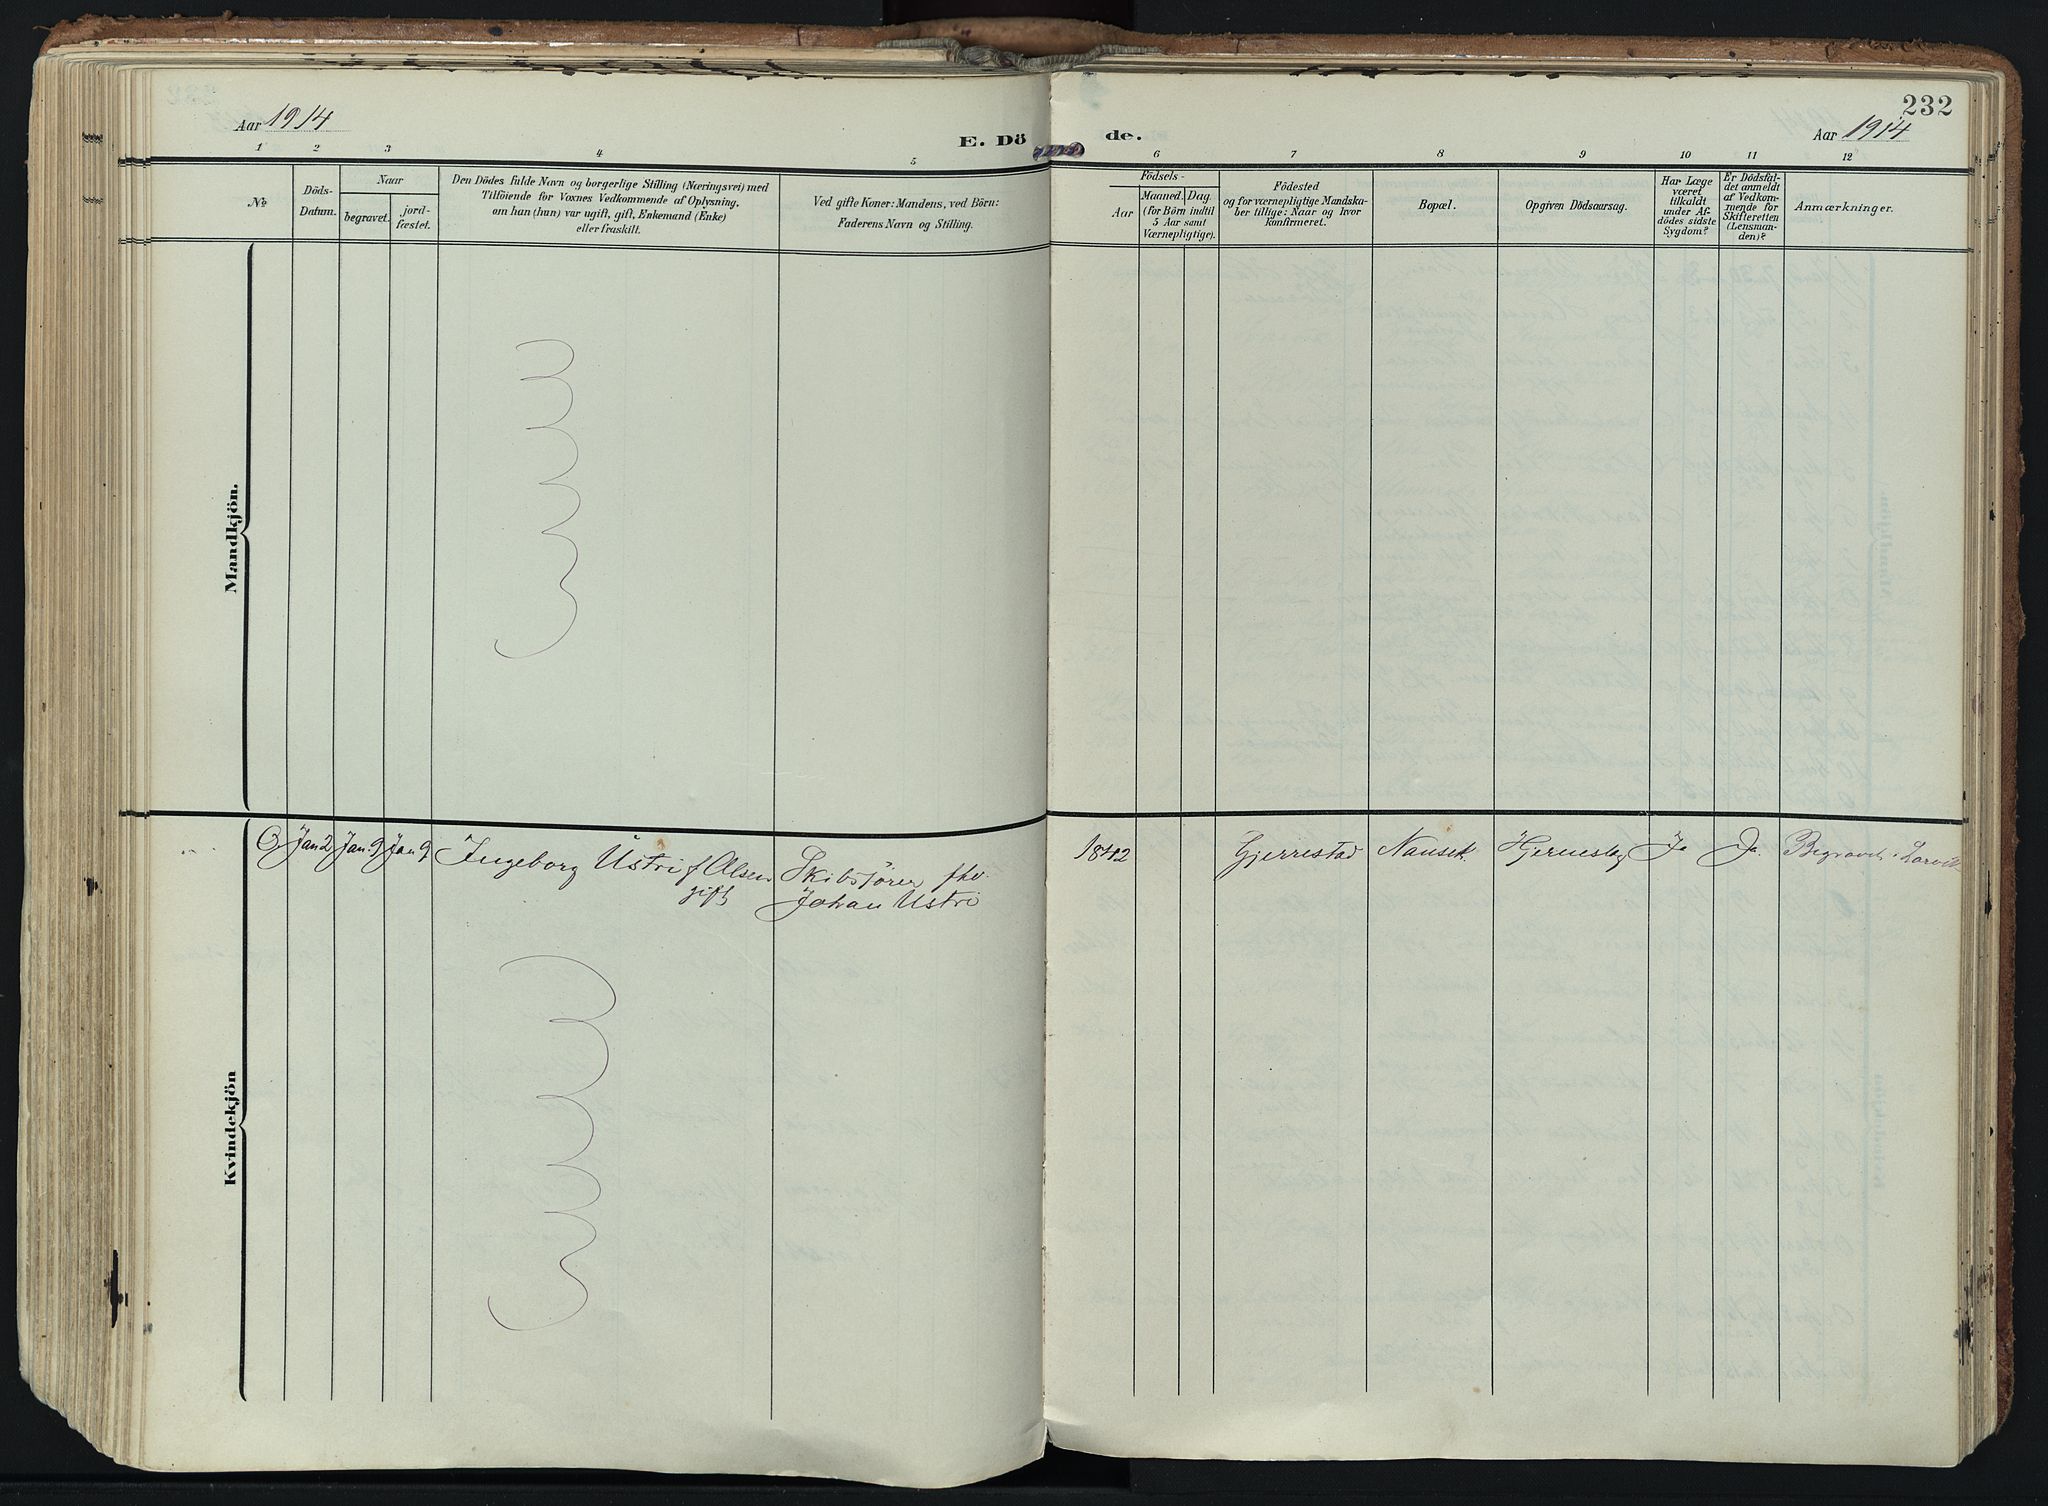 232
Aar 1914
E. Dö
de.
Aar 1914
1 2 3 4 5 6 7 8 9 10 11 12
No
Döds-
Datum.
Naar
begravet.
jord-
fæstet.
Den Dödes fulde Navn og borgerlige Stilling (Næringsvei) med
Tilföiende for Voxnes Vedkommende af Oplysning.
om han (hun) var ugift, gift, Enkemand (Enke)
eller fraskilt.
Ved gifte Koner: Mandens, ved Börn:
Faderens Navn og Stilling.
Födsels-
Aar
Maaned. Dag.
(for Börn indtil
5 Aar samt
Værnepligtige).
Födested
og for værnepligtige Mandska-
ber tillige: Naar og hvor
konfirmeret.
Bopæl.
Opgiven Dödsaarsag.
Har Læge
været
tilkaldt
under Af-
dödes sidste
Sygdom?
Er Dödsfal-
det anmeldt
af Vedkom-
mende for
Skifteretten
(Lensman-
den)?
Anmærkninger.
Mandkjön.
Kvindekjön
Jan 2 Jan. 9 Jan 9 Ingeborg Ustri f Olsen Skibsförer fhv. 1842 Gjerrestad Nanset. Hjerneslag Ja Ja. Begravet i Larvik
gift Johan Ustri